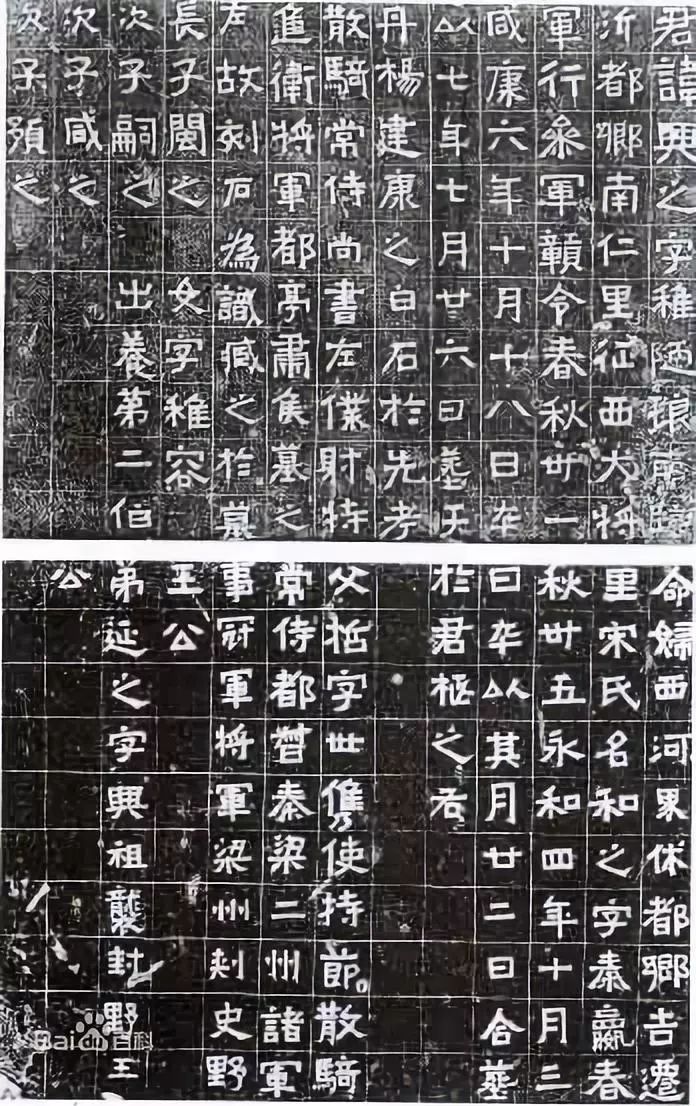 君諱興之字稚陋琅耶臨
沂都鄉南仁里征西大將
軍行參軍贛令春秋卅一
咸康六年十月十八日卒
以七年七月廿六日葬于
丹楊建康之白石於先考
散騎常侍尚書左僕射特
進衛將軍都亭肅侯墓之
左故刻石為識臧之於墓
長子閩之 女字稚容
次子嗣之 出養第二伯
次子咸之
次子預之
命婦西河界休都鄉吉遷
里宋氏名和之字秦嬴春
秋卅五永和四年十月三
日卒以其月廿二日合葬
於君柩之右
父哲字世儁使持節散騎
常侍都督秦梁二州諸軍
事冠軍將軍梁州刺史野
王公
弟延之字興祖襲封野王
公
Baidu百科